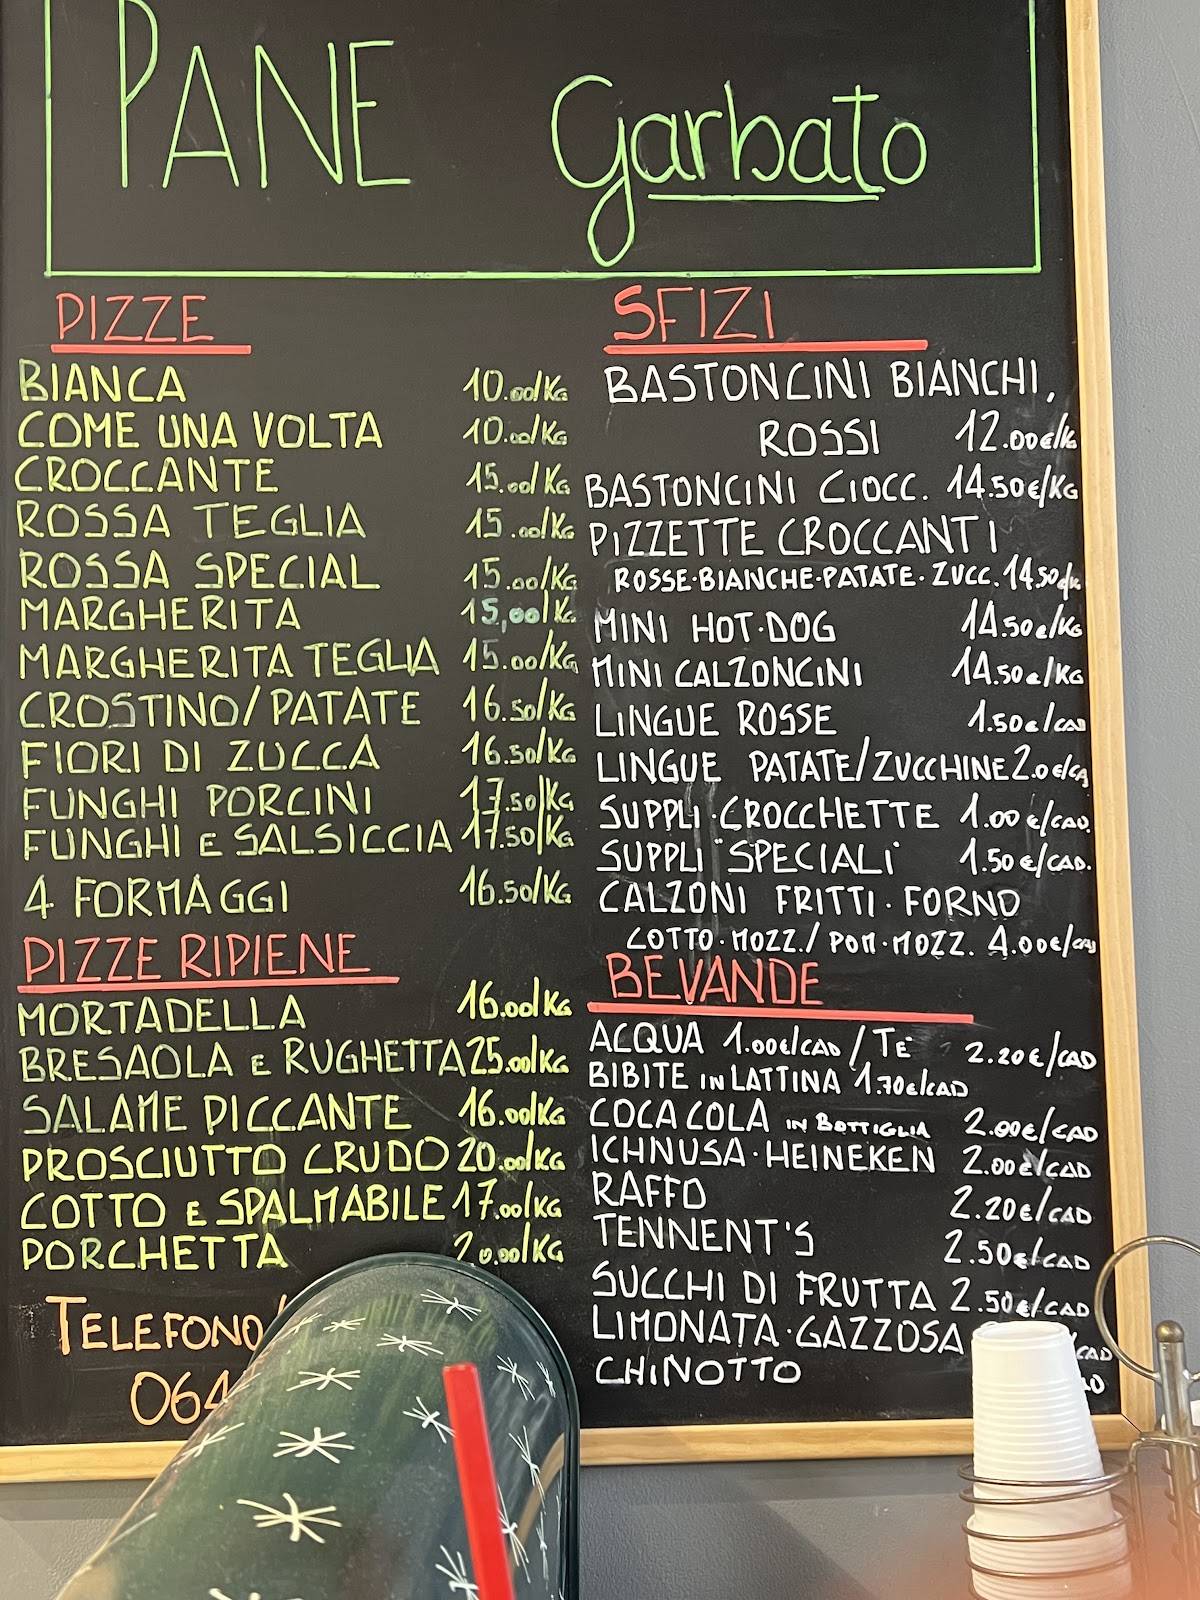 PANE Garbato
PIZZE
BIANCA 10.00/KG
COME UNA VOLTA 10.00/KG
CROCCANTE 15.00/KG
ROSSA TEGLIA 15.00/KG
ROSSA SPECIAL 15.00/KG
MARGHERITA 15,00/KG
MARGHERITA TEGLIA 15.00/KG
CROSTINO/PATATE 16.50/KG
FIORI DI ZUCCA 16.50/KG
FUNGHI PORCINI 17.50/KG
FUNGHI E SALSICCIA 17.50/KG
4 FORMAGGI 16.50/KG
PIZZE RIPIENE
MORTADELLA 16.00/KG
BRESAOLA E RUGHETTA 25.00/KG
SALAME PICCANTE 16.00/KG
PROSCIUTTO CRUDO 20.00/KG
COTTO E SPALMABILE 17.00/KG
PORCHETTA 20.00/KG
TELEFONO
064
SFIZI
BASTONCINI BIANCHI,
ROSSI 12.00€/KG
BASTONCINI CIOCC. 14.50€/KG
PIZZETTE CROCCANTI
ROSSE·BIANCHE·PATATE·ZUCC. 14.50€/KG
MINI HOT·DOG 14.50€/KG
MINI CALZONCINI 14.50€/KG
LINGUE ROSSE 1.50€/CAD
LINGUE PATATE/ZUCCHINE 2.0€/CAD
SUPPLI·CROCCHETTE 1.00€/CAD.
SUPPLI "SPECIALI" 1.50€/CAD.
CALZONI FRITTI·FORNO
COTTO·MOZZ./POM·MOZZ. 4.00€/CAD
BEVANDE
ACQUA 1.00€/CAD / TE 2.20€/CAD
BIBITE IN LATTINA 1.70€/CAD
COCA COLA IN BOTTIGLIA 2.00€/CAD
ICHNUSA·HEINEKEN 2.00€/CAD
RAFFO 2.20€/CAD
TENNENT'S 2.50€/CAD
SUCCHI DI FRUTTA 2.50€/CAD
LIMONATA·GAZZOSA /CAD
CHINOTTO